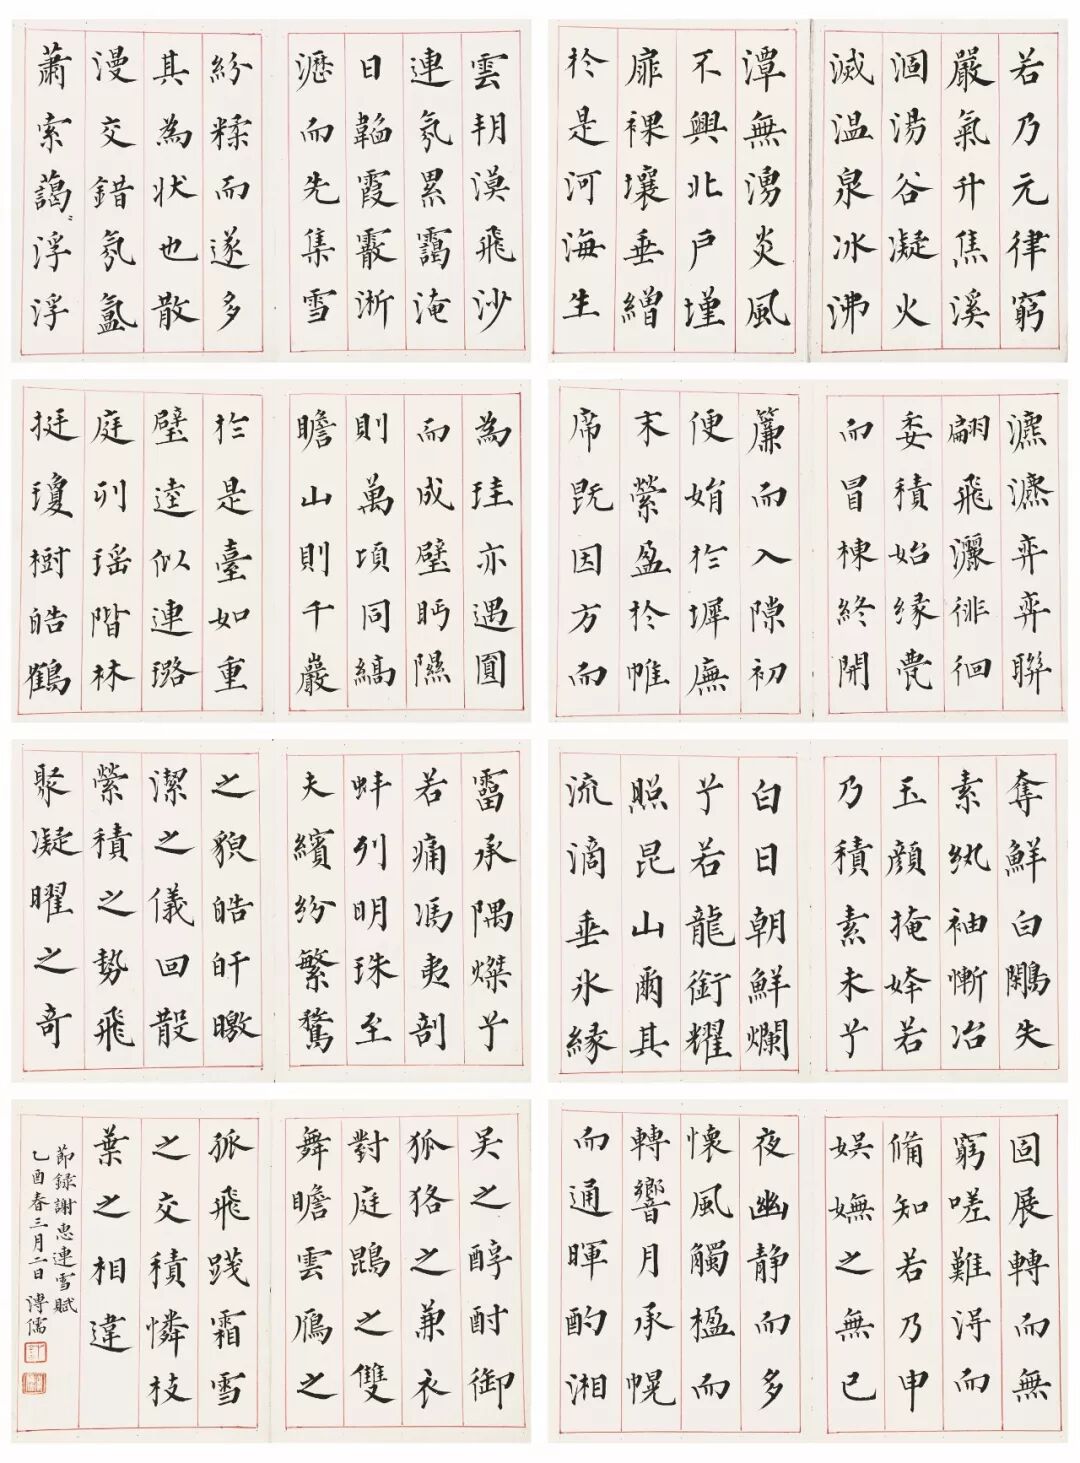 若乃元律窮
嚴氣升焦溪
涸湯谷凝火
滅温泉冰沸
潭無湧炎風
不興北戶墐
扉裸壤垂繒
扵是河海生
雲朔漠飛沙
連氛累靄淹
日韜霞霰淅
瀝而先集雪
紛糅而遂多
其為状也散
漫交錯氛氳
蕭索藹〻浮浮
瀌瀌弈弈聯
翩飛灑徘徊
委積始緣甍
而冒棟終開
簾而入隙初
便娟扵墀廡
末縈盈扵帷
席既因方而
為珪亦遇圓
而成璧眄隰
則萬頃同縞
瞻山則千巖
扵是臺如重
璧逵似連璐
庭列瑶階林
挺瓊樹皓鶴
奪鮮白鷴失
素紈袖慚冶
玉顏掩姱若
乃積素未兮
白日朝鮮爛
兮若龍銜耀
照昆山爾其
流滴垂氷緣
霤承隅燦兮
若痛馮夷剖
蚌列明珠至
夫繽紛繁騖
之貌皓皔曒
潔之儀回散
縈積之勢飛
聚凝曜之奇
固展轉而無
窮嗟難得而
備知若乃申
娛嫵之無已
夜幽静而多
懷風觸楹而
轉響月承幌
而通暉酌湘
吴之醇酎御
狐狢之兼衣
對庭鵾之雙
舞瞻雲鴈之
孤飛踐霜雪
之交積憐枝
葉之相違
節録謝惠連雪賦
乙酉春三月二日溥儒